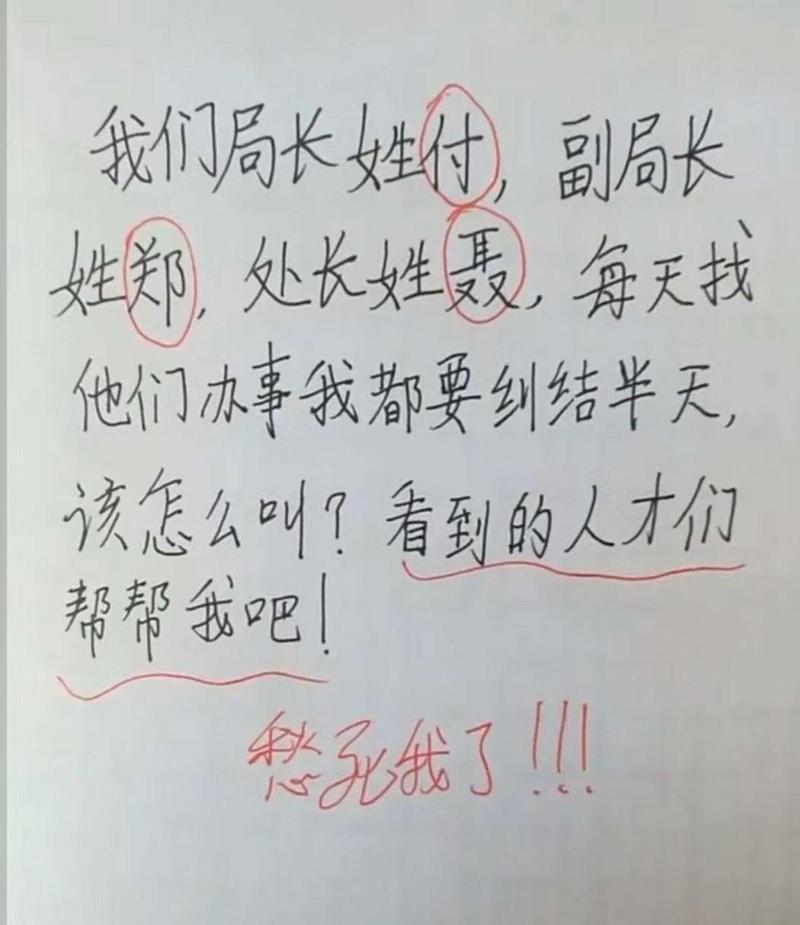 我们局长姓付，副局长
姓郑，处长姓聂，每天找
他们办事我都要纠结半天，
该怎么叫？看到的人才们
帮帮我吧！
愁死我了!!!